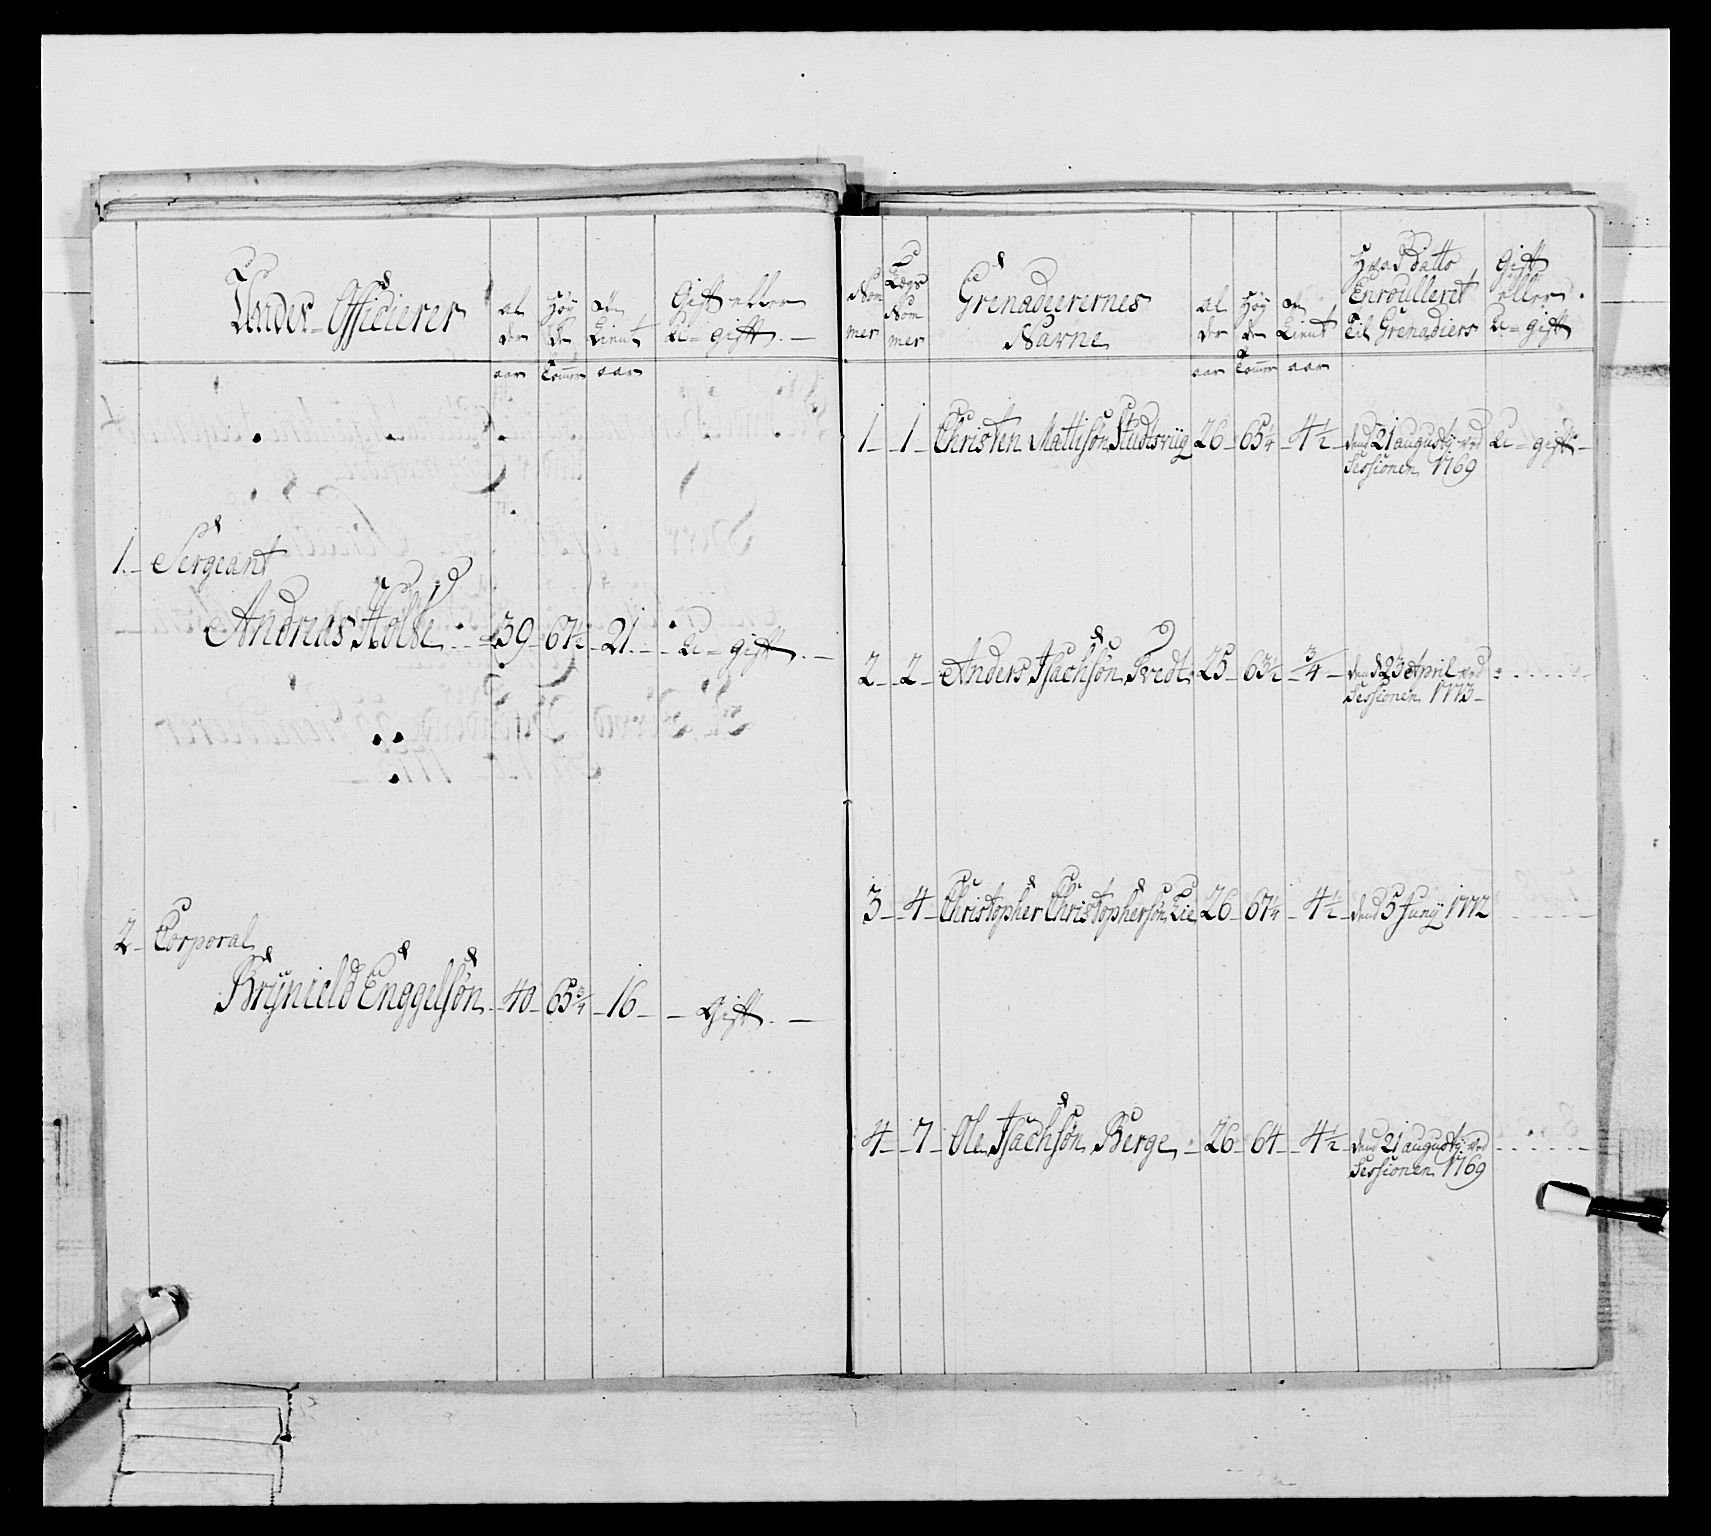 Under-Officierer
al
der
aar
Høy
de
Tommer
Tient
aar
Gift eller
U=gift.
1. Sergeant
Andreas Holbe 39 67½ 21 U=gift.
2 Corporal
Brÿnield Enggelsøn 40 65¾ 16 Gift.
Nom
mer
Lægs
Nom
mer
Grenadeerernes
Navne
al
der
aar
Høy
de
Tommer
Tient
aar
Hvad datto
Enroulleret
Til Grenadiers
Gift
eller
U=gift
1 1 Christen Mattisøn 26 65¼ 4½ dend 21 augusty ved U=gift
Sessionen 1769
2 2 Anders Isachsøn Tvedt 25 63½ ¾ dend 23 April ved
Sessionen 1773
3 4 Christopher Christophersøn Lie 26 67¼ 4½ dend 5 Juny 1772
4 7 Ole Isachsøn Berge 26 64 4½ dend 21 augusty ved
Sessionen 1769